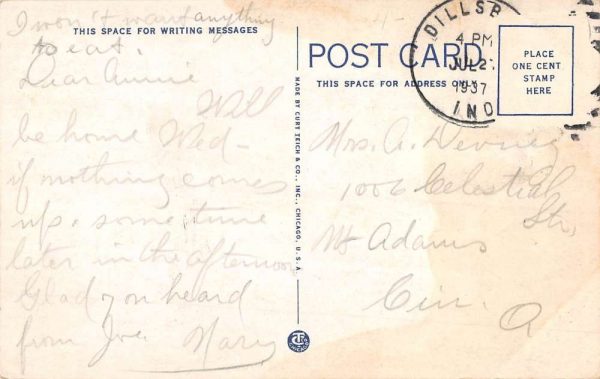 I won't want anything
to eat.
THIS SPACE FOR WRITING MESSAGES
Dear Annie
Will
be home Wed-
if nothing comes
up. sometime
later in the afternoon
Glad you heard
from Joe. Mary
MADE BY CURT TEICH & CO., INC., CHICAGO, U.S.A.
POST CARD
THIS SPACE FOR ADDRESS ONLY
DILLSB
4 PM
JUL 2
1937
IND
PLACE
ONE CENT
STAMP
HERE
Mrs. A.
1006 Celestial
Str,
Mt Adams
Cin. O